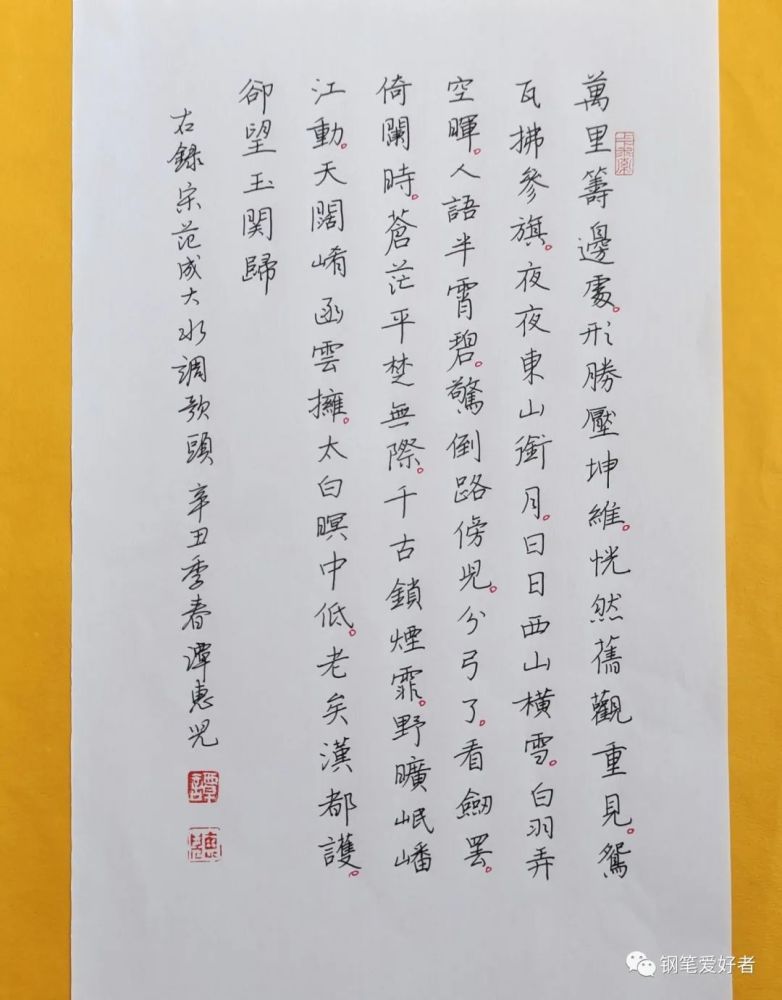 萬里籌邊處。形勝壓坤維。恍然舊觀重見。鴛
瓦拂參旗。夜夜東山銜月。日日西山橫雪。白羽弄
空暉。人語半霄碧。驚倒路傍兒。分弓了。看劒罷。
倚闌時。蒼茫平楚無際。千古鎖煙霏。野曠岷嶓
江動。天闊崤函雲擁。太白暝中低。老矣漢都護。
卻望玉関歸
右錄宋范成大水調歌頭 辛丑季春譚惠兒
譚
钢笔爱好者